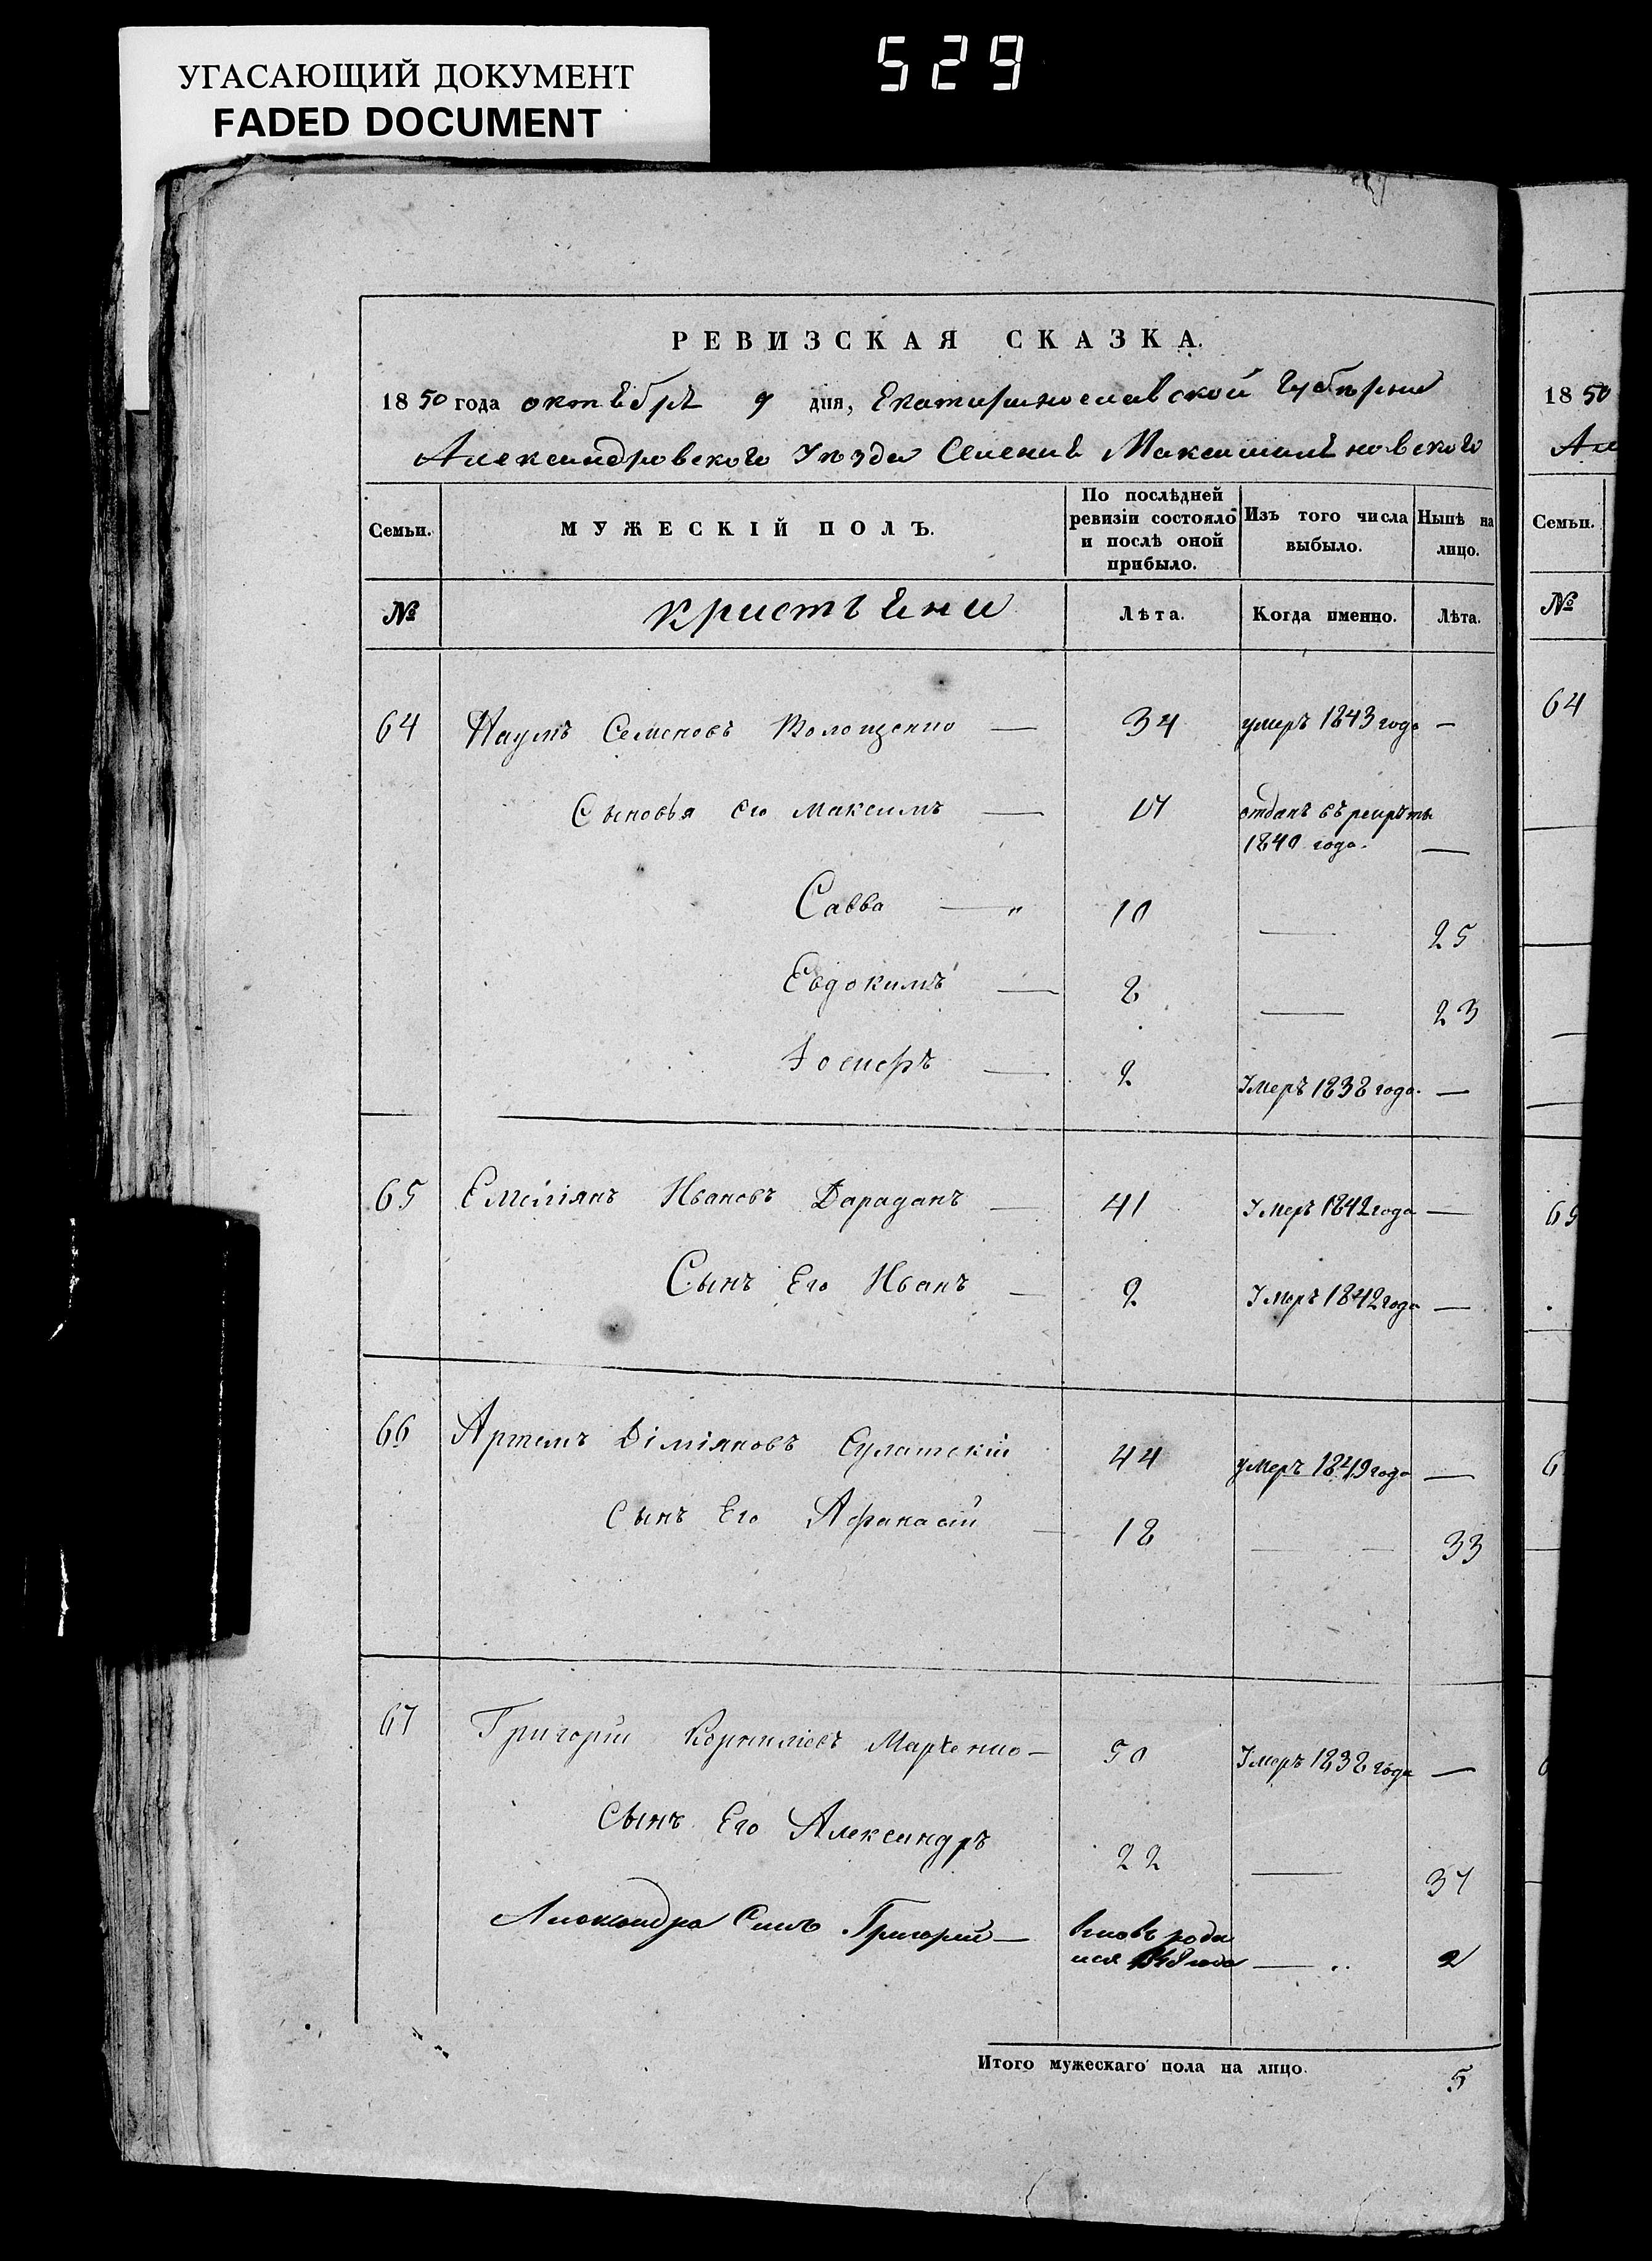 УГАСАЮЩИЙ ДОКУМЕНТ
FADED DOCUMENT
529
РЕВИЗСКАЯ СКАЗКА.
1850 года октября 9 дня, Екатеринославской Губѣрнии
Александровского Уѣзда Селения Максимиляновского
Семьи.
МУЖЕСКІЙ ПОЛЪ.
По послѣдней ревизіи состояло и послѣ оной прибыло.
Изъ того числа выбыло.
Нынѣ на лицо.
№
кристьяни
Лѣта.
Когда именно.
Лѣта.
64 Наумъ Семеновъ Волощенко — 34 умеръ 1843 года —
Сыновья его Максимъ — 17 отданъ въ рекруты
1840 года. —
Савва — 10 — 25
Евдокимъ — 8 — 23
Іосифъ — 2 Умеръ 1838 года. —
65 Емеліянъ Ивановъ Дараданъ — 41 Умеръ 1842 года —
Сынъ Его Иванъ — 2 Умеръ 1842 года —
66 Артемъ Диміяновъ 44 умеръ 1849 года —
Сынъ Его Афанасій — 18 — 33
67 Григорій Корниліевъ Марченко — 50 Умеръ 1838 года —
Сынъ Его Александръ 22 — 37
Александра Сынъ Григорий — вновь роди
лся 1848 года — 2
Итого мужескаго пола на лицо. 5
1850
Ал
Семьи.
№
64
65
6